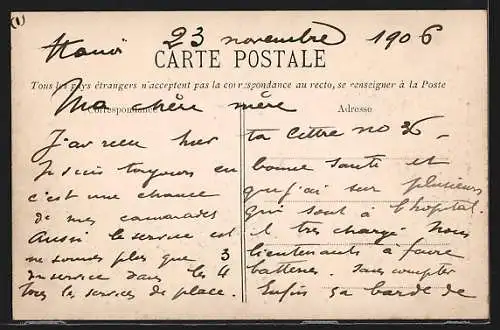 (1)
Hanoï 23 novembre 1906
CARTE POSTALE
Tous les pays étrangers n'acceptent pas la correspondance au recto, se renseigner à la Poste
Ma chère mère
Correspondance Adresse
J'ai reçu hier ta lettre no 36 -
Je suis toujours en bonne santé et
c'est une chance que j'ai sur plusieurs
de mes camarades qui sont à l'hôpital.
Aussi le service est il très chargé. Nous
ne sommes plus que 3 lieutenants à faire
du service dans les 4 batteries. Sans compter
tous les services de place. Enfin sa barde de